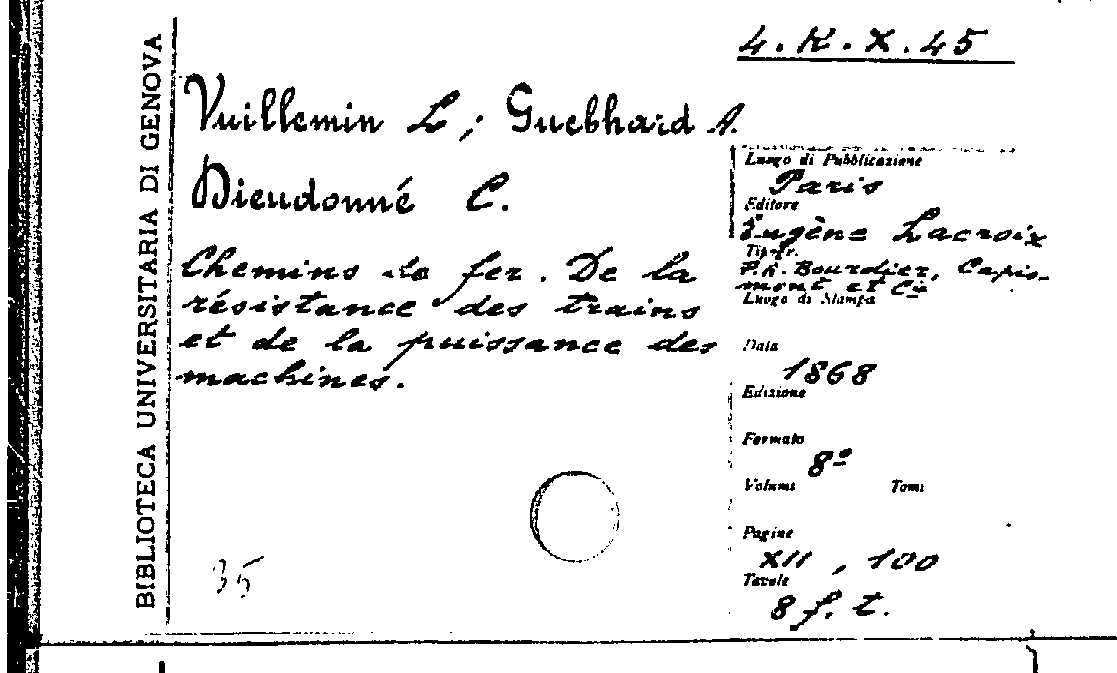 BIBLIOTECA UNIVERSITARIA DI GENOVA
4.K.X.45
Vuillemin L; Guebhard A.
Dieudonné C.
Chemins de fer. De la
résistance des trains
et de la puissance des
machines.
35
Luogo di Pubblicazione
Paris
Editore
Eugène Lacroix
Tipogr.
P.A. Bourdier, Capio-
mont et Cie
Luogo di Stampa
Data
1868
Edizione
Formato
8º
Volumi Tomi
Pagine
XII, 100
Tavole
8 f. t.